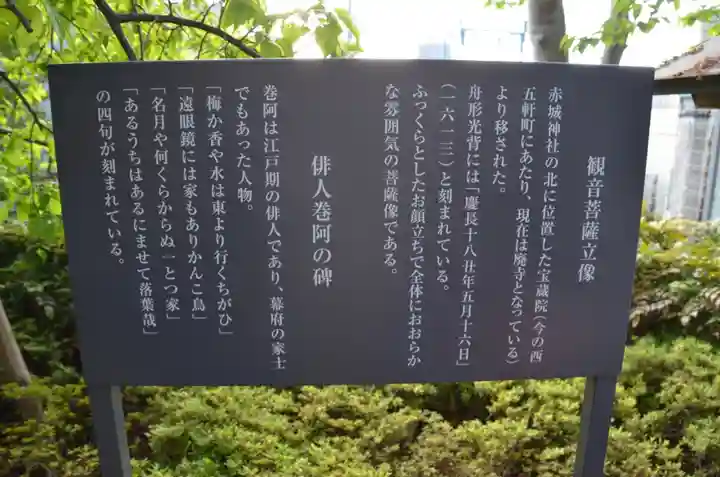 観音菩薩立像
赤城神社の北に位置した宝蔵院(今の西
五軒町にあたり、現在は廃寺となっている)
より移された。
舟形光背には「慶長十八丑年五月十六日」
(一六一三)と刻まれている。
ふっくらとしたお顔立ちで全体におおらか
な雰囲気の菩薩像である。
俳人巻阿の碑
巻阿は江戸期の俳人であり、幕府の家士
でもあった人物。
「梅か香や水は東より行くちがひ」
「遠眼鏡には家もありかんこ鳥」
「名月や何くらからぬ一とつ家」
「あるうちはあるにませて落葉哉」
の四句が刻まれている。